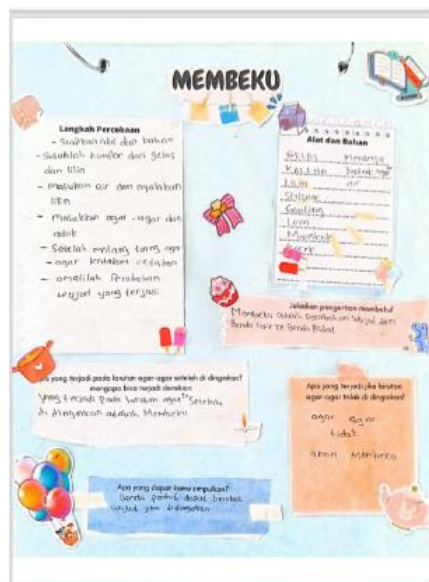 MEMBEKU
Langkah Percobaan
- Siapkan alat dan bahan
- Susunlah kompor dari gelas
dan lilin
- masukan air dan nyalakan
lilin
- masukkan agar-agar dan
aduk
- Setelah matang tuang agar
- agar kedalam cetakan
- amatilah Perubahan
wujud yang terjadi
Alat dan Bahan
GELAS
KALENG
Lilin air
Gunting
Lem
Mangkok
korek
Jelaskan pengertian membeku!
Membeku adalah Perubahan wujud dari
Benda cair ke Benda Padat
yang terjadi pada larutan agar-agar setelah di dinginkan?
mengapa bisa terjadi demikian
yang terjadi Pada larutan agar" Setelah
di dinginkan adalah Membeku
Apa yang terjadi jika larutan
agar-agar tidak di dinginkan?
agar agar
tidak
akan Membeku
Apa yang dapat kamu simpulkan?
Benda dapat berubah
wujud jika didinginkan